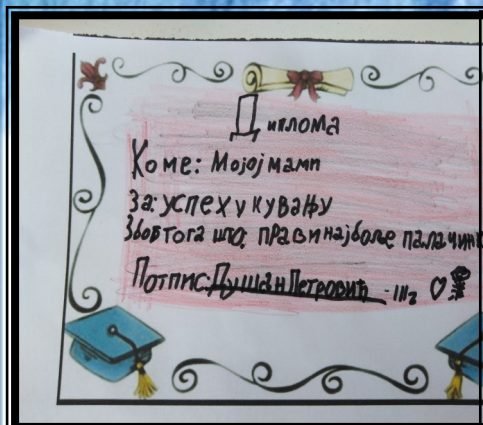 Диплома
Коме: Мојој мами
За: успех у кувању
Због тога што: прави најбоље палачинк
Потпис: Душан Петровић - III2